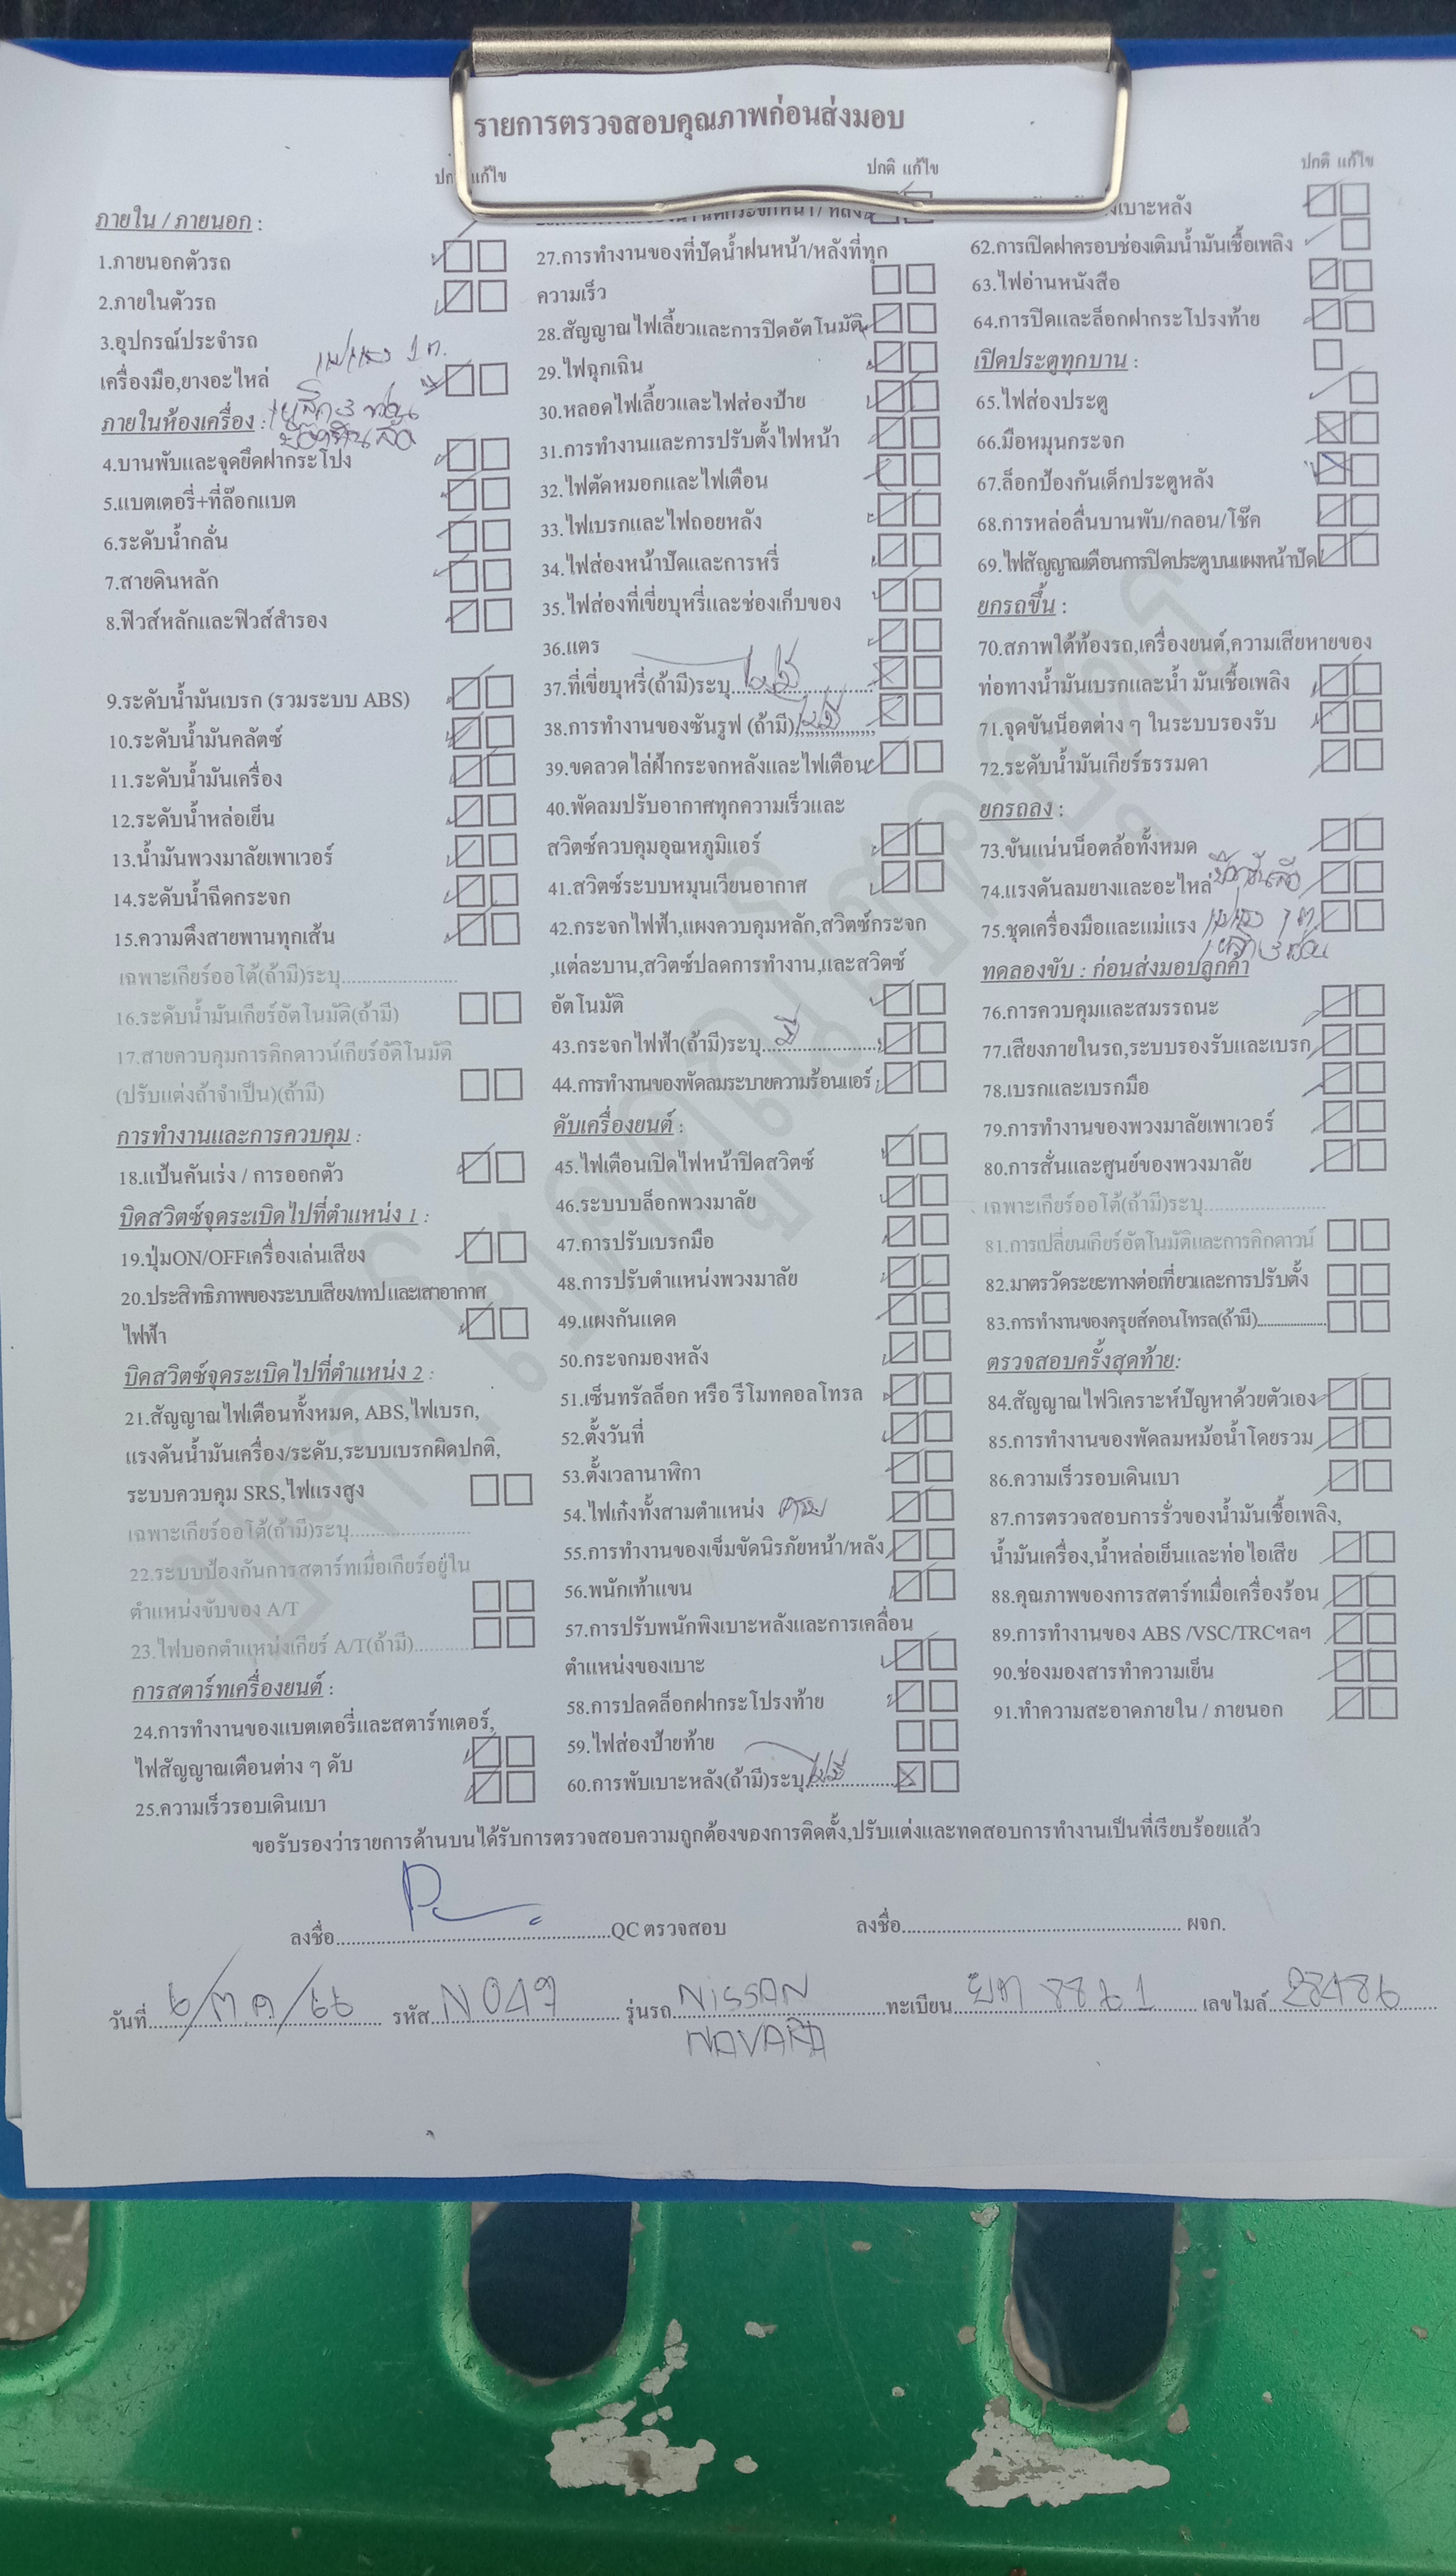 รายการตรวจสอบคุณภาพก่อนส่งมอบ
แก้ไข
ภายใน / ภายนอก :
1.ภายนอกตัวรถ
2.ภายในตัวรถ
3.อุปกรณ์ประจำรถ
เครื่องมือ,ยางอะไหล่
ภายในห้องเครื่อง :
4.บานพับและจุดยึดฝากระโปง
5.แบตเตอรี่+ที่ล๊อกแบต
6.ระดับน้ำกลั่น
7.สายดินหลัก
8.ฟิวส์หลักและฟิวส์สำรอง
9.ระดับน้ำมันเบรก (รวมระบบ ABS)
10.ระดับน้ำมันคลัตซ์
11.ระดับน้ำมันเครื่อง
12.ระดับน้ำหล่อเย็น
13.น้ำมันพวงมาลัยเพาเวอร์
14.ระดับน้ำฉีดกระจก
15.ความตึงสายพานทุกเส้น
เฉพาะเกียร์ออโต้(ถ้ามี)ระบุ
16.ระดับน้ำมันเกียร์อัตโนมัติ(ถ้ามี)
17.สายควบคุมการคิกดาวน์เกียร์อัติโนมัติ
(ปรับแต่งถ้าจำเป็น)(ถ้ามี)
การทำงานและการควบคุม :
18.แป้นคันเร่ง / การออกตัว
บิดสวิตซ์จุดระเบิดไปที่ตำแหน่ง 1 :
19.ปุ่มON/OFFเครื่องเล่นเสียง
20.ประสิทธิภาพของระบบเสียง/เทปและเสาอากาศ
ไฟฟ้า
บิดสวิตซ์จุดระเบิดไปที่ตำแหน่ง 2 :
21.สัญญาณไฟเตือนทั้งหมด, ABS,ไฟเบรก,
แรงดันน้ำมันเครื่อง/ระดับ,ระบบเบรกผิดปกติ,
ระบบควบคุม SRS,ไฟแรงสูง
เฉพาะเกียร์ออโต้(ถ้ามี)ระบุ
22.ระบบป้องกันการสตาร์ทเมื่อเกียร์อยู่ใน
ตำแหน่งขับของ A/T
23.ไฟบอกตำแหน่งเกียร์ A/T(ถ้ามี)
การสตาร์ทเครื่องยนต์ :
24.การทำงานของแบตเตอรี่และสตาร์ทเตอร์,
ไฟสัญญาณเตือนต่าง ๆ ดับ
25.ความเร็วรอบเดินเบา
ปกติ แก้ไข
27.การทำงานของที่ปัดน้ำฝนหน้า/หลังที่ทุก
ความเร็ว
28.สัญญาณไฟเลี้ยวและการปิดอัตโนมัติ
29.ไฟฉุกเฉิน
30.หลอดไฟเลี้ยวและไฟส่องป้าย
31.การทำงานและการปรับตั้งไฟหน้า
32.ไฟตัดหมอกและไฟเตือน
33.ไฟเบรกและไฟถอยหลัง
34.ไฟส่องหน้าปัดและการหรี่
35.ไฟส่องที่เขี่ยบุหรี่และช่องเก็บของ
36.แตร
37.ที่เขี่ยบุหรี่(ถ้ามี)ระบุ ไม่มี
38.การทำงานของซันรูฟ (ถ้ามี) ไม่มี
39.ขดลวดไล่ฝ้ากระจกหลังและไฟเตือน
40.พัดลมปรับอากาศทุกความเร็วและ
สวิตซ์ควบคุมอุณหภูมิแอร์
41.สวิตซ์ระบบหมุนเวียนอากาศ
42.กระจกไฟฟ้า,แผงควบคุมหลัก,สวิตซ์กระจก
,แต่ละบาน,สวิตซ์ปลดการทำงาน,และสวิตซ์
อัตโนมัติ
43.กระจกไฟฟ้า(ถ้ามี)ระบุ มี
44.การทำงานของพัดลมระบายความร้อนแอร์
ดับเครื่องยนต์ :
45.ไฟเตือนเปิดไฟหน้าปิดสวิตซ์
46.ระบบบล็อกพวงมาลัย
47.การปรับเบรกมือ
48.การปรับตำแหน่งพวงมาลัย
49.แผงกันแดด
50.กระจกมองหลัง
51.เซ็นทรัลล็อก หรือ รีโมทคอลโทรล
52.ตั้งวันที่
53.ตั้งเวลานาฬิกา
54.ไฟเก๋งทั้งสามตำแหน่ง
55.การทำงานของเข็มขัดนิรภัยหน้า/หลัง
56.พนักเท้าแขน
57.การปรับพนักพิงเบาะหลังและการเคลื่อน
ตำแหน่งของเบาะ
58.การปลดล็อกฝากระโปรงท้าย
59.ไฟส่องป้ายท้าย
60.การพับเบาะหลัง(ถ้ามี)ระบุ ไม่มี
ปกติ แก้ไข
งเบาะหลัง
62.การเปิดฝาครอบช่องเติมน้ำมันเชื้อเพลิง
63.ไฟอ่านหนังสือ
64.การปิดและล็อกฝากระโปรงท้าย
เปิดประตูทุกบาน :
65.ไฟส่องประตู
66.มือหมุนกระจก
67.ล็อกป้องกันเด็กประตูหลัง
68.การหล่อลื่นบานพับ/กลอน/โช๊ค
69.ไฟสัญญาณเตือนการปิดประตูบนแผงหน้าปัด
ยกรถขึ้น :
70.สภาพใต้ท้องรถ,เครื่องยนต์,ความเสียหายของ
ท่อทางน้ำมันเบรกและน้ำ มันเชื้อเพลิง
71.จุดขันน็อตต่าง ๆ ในระบบรองรับ
72.ระดับน้ำมันเกียร์ธรรมดา
ยกรถลง :
73.ขันแน่นน็อตล้อทั้งหมด
74.แรงดันลมยางและอะไหล่
75.ชุดเครื่องมือและแม่แรง
ทดลองขับ : ก่อนส่งมอบลูกค้า
76.การควบคุมและสมรรถนะ
77.เสียงภายในรถ,ระบบรองรับและเบรก
78.เบรกและเบรกมือ
79.การทำงานของพวงมาลัยเพาเวอร์
80.การสั่นและศูนย์ของพวงมาลัย
เฉพาะเกียร์ออโต้(ถ้ามี)ระบุ
81.การเปลี่ยนเกียร์อัตโนมัติและการคิกดาวน์
82.มาตรวัดระยะทางต่อเที่ยวและการปรับตั้ง
83.การทำงานของครุยส์คอนโทรล(ถ้ามี)
ตรวจสอบครั้งสุดท้าย:
84.สัญญาณไฟวิเคราะห์ปัญหาด้วยตัวเอง
85.การทำงานของพัดลมหม้อน้ำโดยรวม
86.ความเร็วรอบเดินเบา
87.การตรวจสอบการรั่วของน้ำมันเชื้อเพลิง,
น้ำมันเครื่อง,น้ำหล่อเย็นและท่อไอเสีย
88.คุณภาพของการสตาร์ทเมื่อเครื่องร้อน
89.การทำงานของ ABS /VSC/TRCฯลฯ
90.ช่องมองสารทำความเย็น
91.ทำความสะอาดภายใน / ภายนอก
ขอรับรองว่ารายการด้านบนได้รับการตรวจสอบความถูกต้องของการติดตั้ง,ปรับแต่งและทดสอบการทำงานเป็นที่เรียบร้อยแล้ว
ลงชื่อ QC ตรวจสอบ ลงชื่อ ผจก.
วันที่ 6/ต.ค/66 รหัส N049 รุ่นรถ NISSAN ทะเบียน 8861 เลขไมล์ 28486
NAVARA